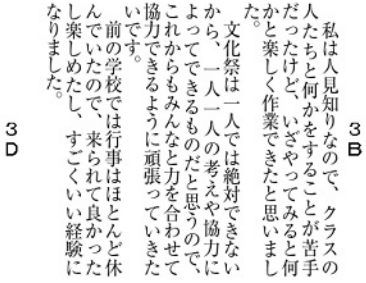 3B
私は人見知りなので、クラスの
人たちと何かをすることが苦手
だったけど、いざやってみると何
かと楽しく作業できたと思いまし
た。
文化祭は一人では絶対できない
から、一人一人の考えや協力に
よってできるものだと思うので、
これからもみんなと力を合わせて
協力できるように頑張っていきた
いです。
前の学校では行事はほとんど休
んでいたので、来られて良かった
し楽しめたし、すごくいい経験に
なりました。
3D